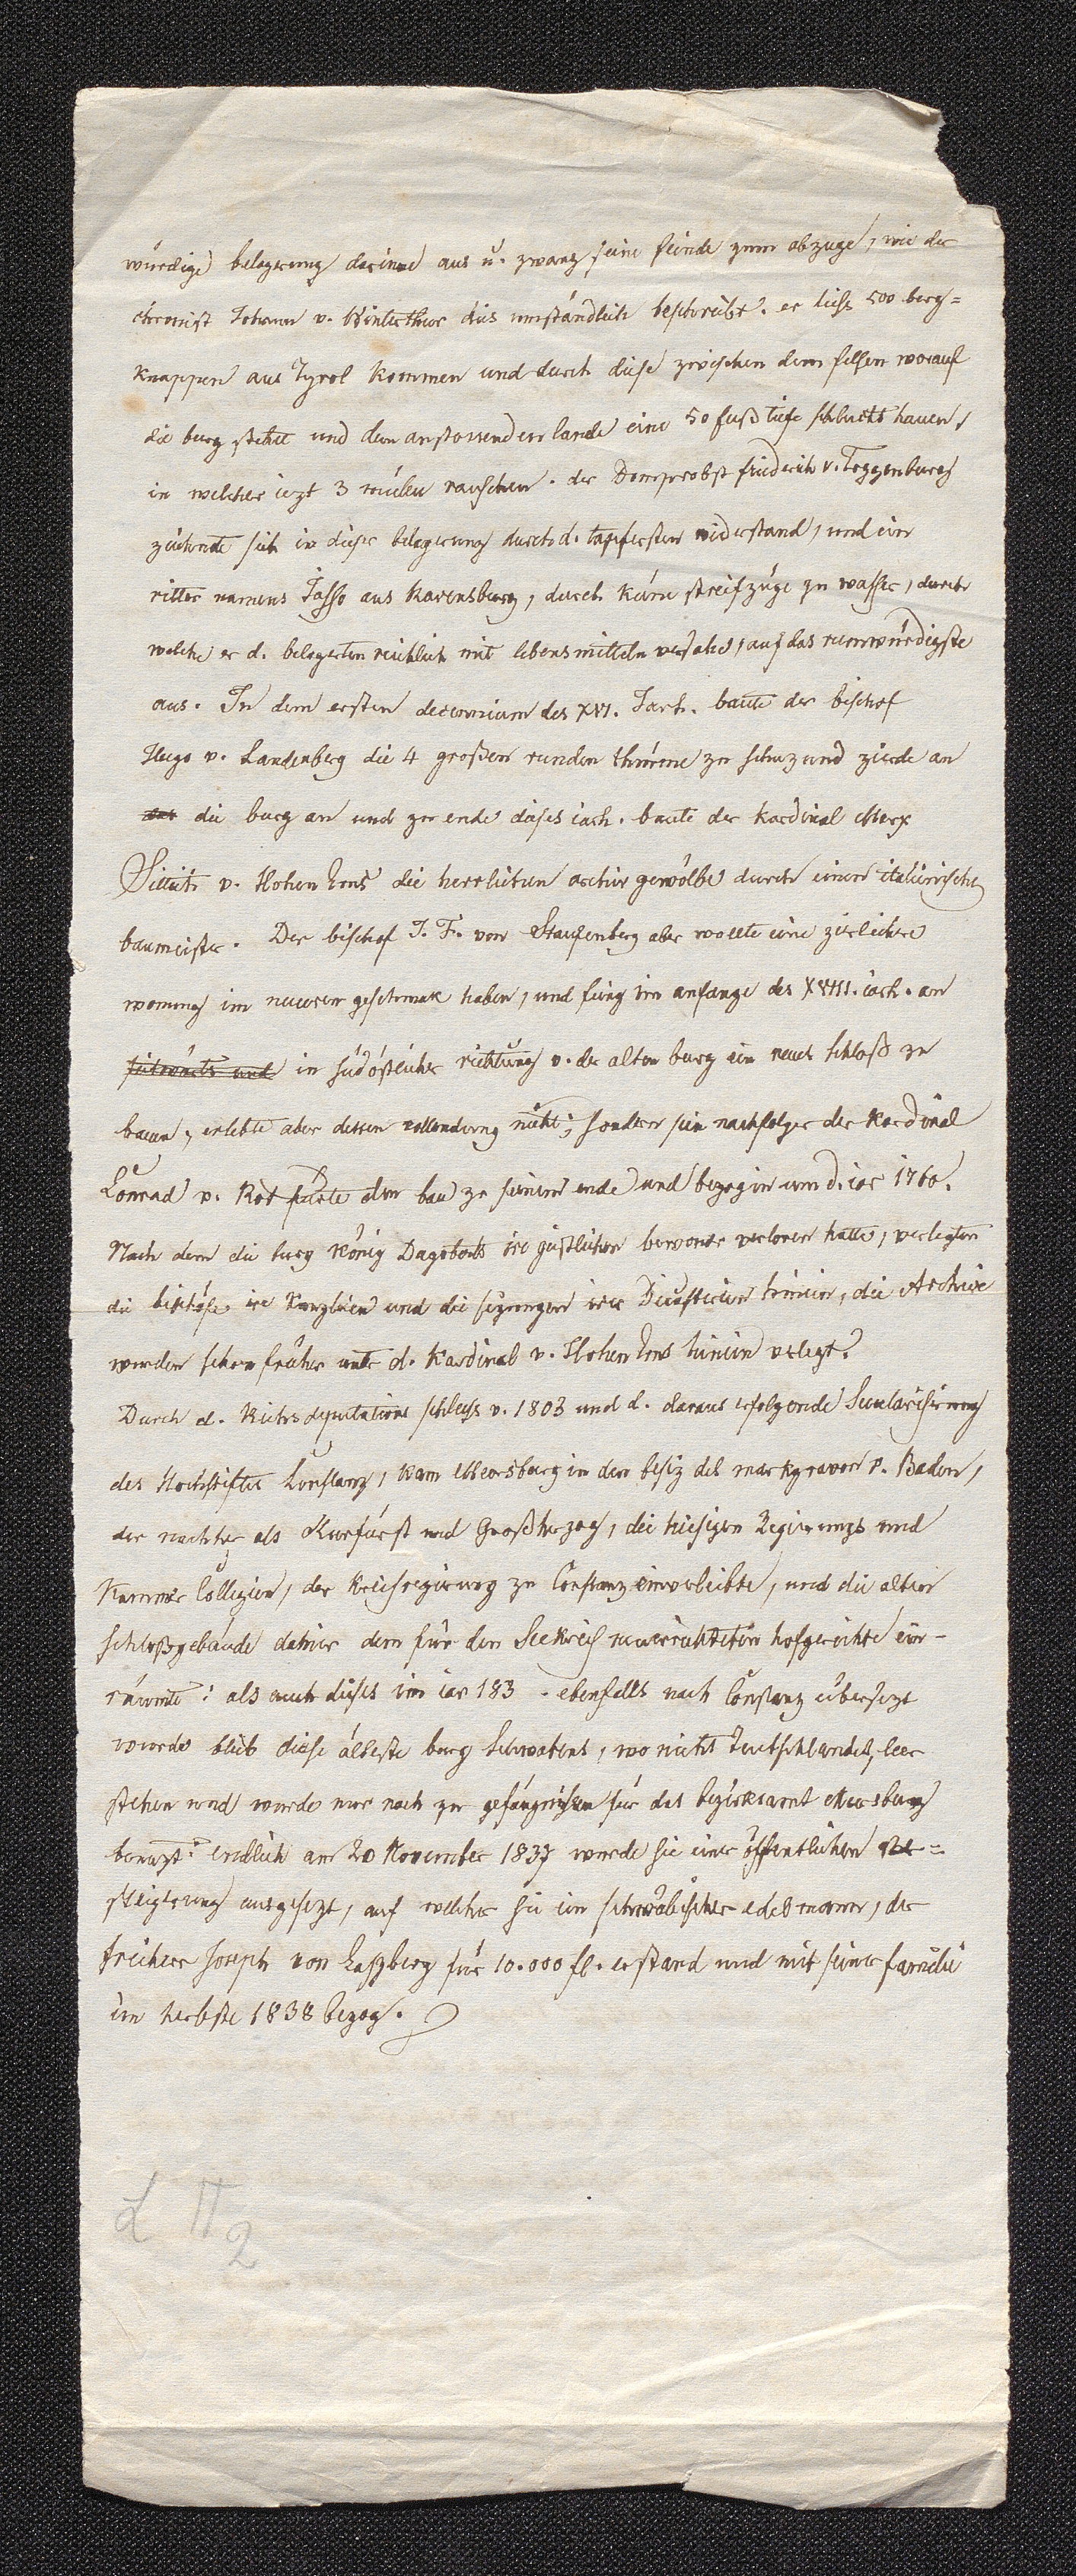 würdige belagerung darinne aus u. zwang seine feinde zum abzuge, wie der
chronist Johann v. Winterthur dies umständlich beschreibt. er liess 500 berg=
knappen aus Tyrol kommen und durch diese zwischen dem felsen worauf
die burg stehet und dem anstossenden lande eine 50 fuß tiefe schlucht hauen,
in welcher iezt 3 mülen rauschen. der Domprobst friederich v. Toggenburg
zeichnete sich in dieser belagerung durch d. tapfersten widerstand, und ein
ritter namens Jasso aus Ravensburg, durch küne streifzüge zu wasser, durch
welche er d. belagerten reichlich mit lebensmitteln versahe, auf das rumwürdigste
aus. In dem ersten decennium des XVI. Jarh. baute der bischof
Hugo v. Landenberg die 4 großen runden thürme zu schuz und zierde an
die burg an und zu ende dieses iarh. baute der Kardinal Marx
Sittich v. Hohen Ems die herrlichen archiv gewölbe durch einen italienischen
baumeister. Der bischof J. F. von Staufenberg aber wollte eine zierlichere
wonung im neueren geschmak haben, und fieng im anfange des XVIII. iarh. an
seitwärts und in südöstlicher richtung v. der alten burg ein neues schloß zu
bauen, erlebte aber dessen vollendung nicht; sondern sein nachfolger der Kardinal
Conrad v. Rot fürte den bau zu seinem ende und bezog in um d. iar 1760.
Nach dem die burg König Dagoberts ire geistlichen bewoner verloren hatte, verlegten
die bischöfe ire Kanzleien und die sizungen irer Dicasterien hinein, die Archive
wurden schon früher unter d. Kardinal v. Hohen Ems hinein verlegt.
Durch d. Reichsdeputations schluss v. 1803 und d. daraus erfolgende Secularisirung
des Hochstiftes Constanz, kam Meersburg in den besiz des markgraven v. Baden,
der nachher als Kurfürst und Großherzog, die hiesigen Regierungs und
Kammer Collegien, der Kreisregierung zu Constanz einverleibte, und die alten
schloßgebäude dahier dem für den Seekreis neuerrichteten hofgerichte ein-
räumte: als auch dieses im iar 183 . ebenfalls nach Constanz übersezt
wurde blieb diese älteste burg Schwabens, wo nicht Teutschlandes, leer
stehen und wurde nur noch zu gefängnissen für das bezirksamt Meersburg
benuzt: endlich am 20 November 1837 wurde sie einer öffentlichen ver=
steigerung ausgesezt, auf welcher sie ein schwäbischer edelmann, der
freiherr Joseph von Laßberg für 10.000 fl. erstand und mit seiner familie
im herbste 1838 bezog.
L II
2